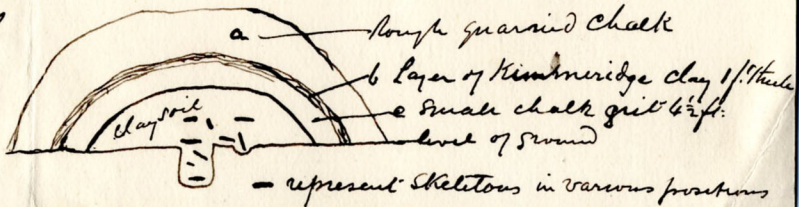 a
rough quarried chalk
b Layer of Kimmeridge clay 1 ft. thick
clay soil
c Small chalk grit 4½ ft:
level of ground
– represent Skeletons in various positions